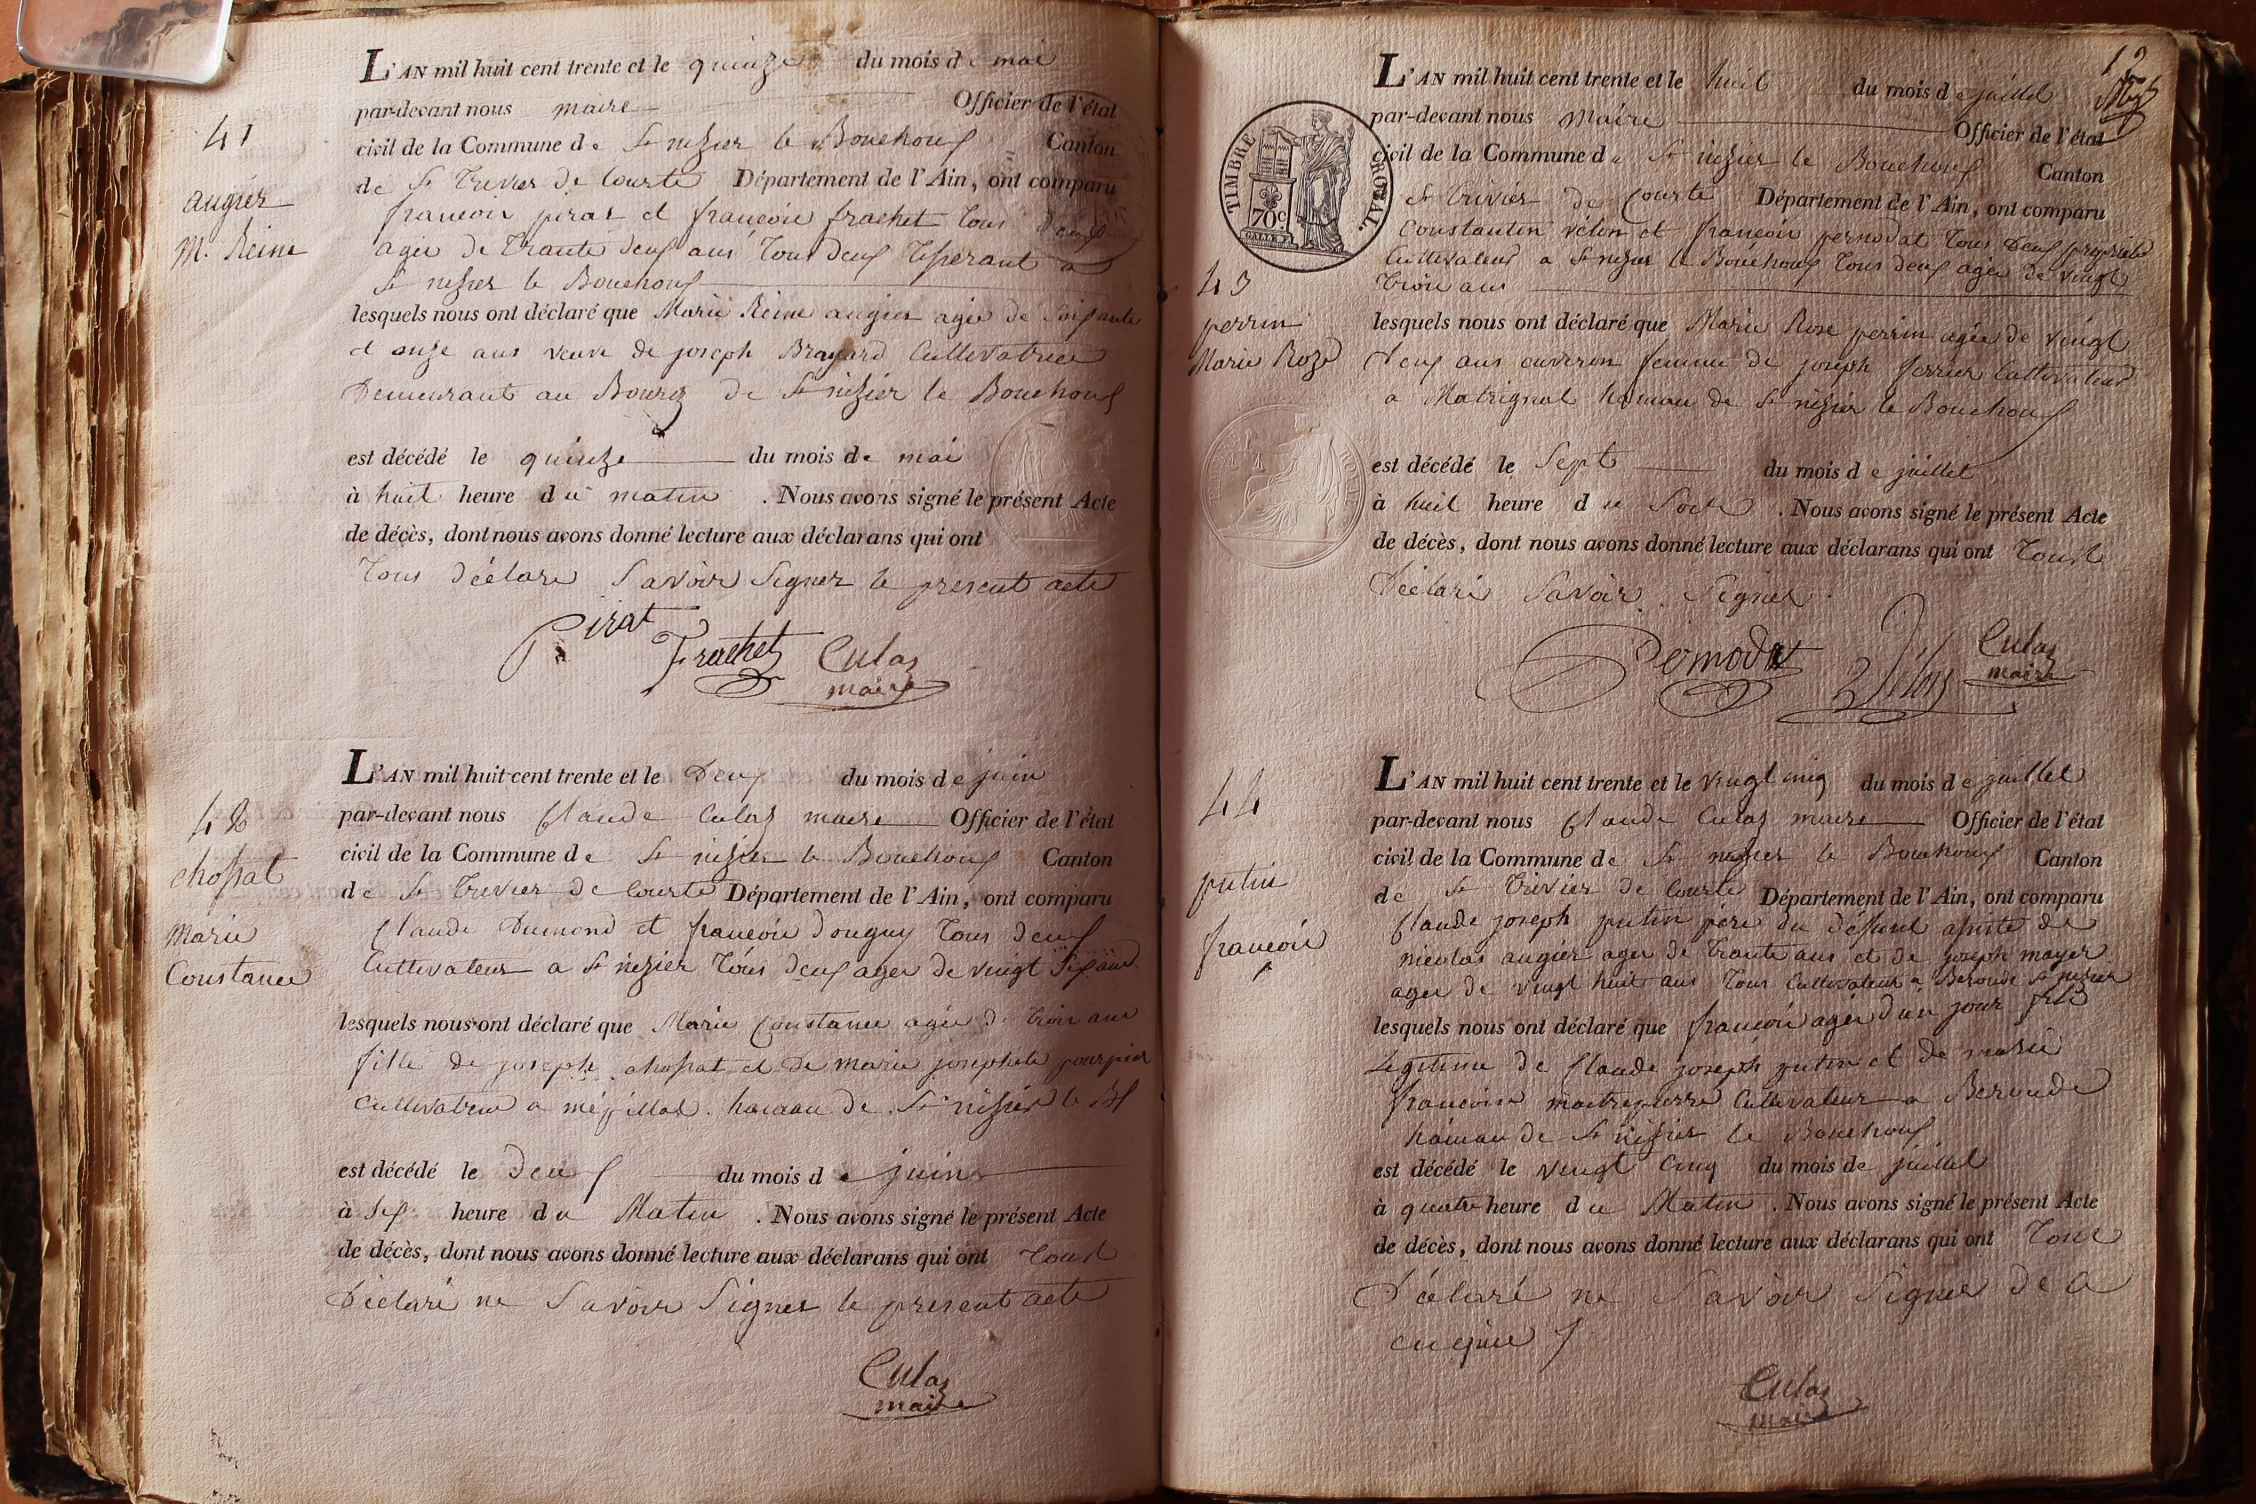 41
augier
M. Reine
L'AN mil huit cent trente et le quinze du mois de mai
par-devant nous maire Officier de l'état
civil de la Commune de St nizier le Bouchoux Canton
de St trivier de Courte Département de l'Ain, ont comparu
francois pirat et francois frachet tous deux
agés de trante deux ans tous deux
St nizier le Bouchoux
lesquels nous ont déclaré que Marie Reine augier agée de soixante
et onze ans veuve de joseph Brayard Cultivatrice
Demeurant au Bourg de St nizier le Bouchoux
est décédé le quinze du mois de mai
à huit heure du matin . Nous avons signé le présent Acte
de décès, dont nous avons donné lecture aux déclarans qui ont
tous déclaré savoir signer le present acte
Pirat Frachet Culas
maire
42
chossat
Marie
Constance
L'AN mil huit cent trente et le Deux du mois de juin
par-devant nous Claude Culas maire Officier de l'état
civil de la Commune de St nizier le Bouchoux Canton
de St trivier de Courte Département de l'Ain, ont comparu
Claude Dumond et francois douguy tous deux
Cultivateur a St nizier tous deux ager de vingt
lesquels nous ont déclaré que Marie Constance agée de trois ans
fille de joseph chossat et de marie josephete pourpier
cultivateur a mépillat hamau de St nizier le
est décédé le deux du mois de juin
à six heure du Matin . Nous avons signé le présent Acte
de décès, dont nous avons donné lecture aux déclarans qui ont tous
Déclaré ne Savoir Signer le present acte
Culas
maire
12
TIMBRE ROYAL.
70 c.
43
perrin
Marie Roze
L'AN mil huit cent trente et le huit du mois de juillet
par-devant nous Maire Officier de l'état
civil de la Commune de St nizier le Bouchoux Canton
St trivier de Courte Département de l'Ain, ont comparu
Constantin vélon et francois pernodat tous deux
Cultivateur a St nizier le Bouchoux tous deux agés de vingt
trois ans
lesquels nous ont déclaré que Marie Rose perrin agée de vingt
deux ans environ femme de joseph ferrier Cultivateur
a Matrignat hamau de St nizier le Bouchoux
est décédé le Sept du mois de juillet
à huit heure du Soir . Nous avons signé le présent Acte
de décès, dont nous avons donné lecture aux déclarans qui ont tous
Déclaré Savoir Signer
Pernodat Culas
maire
44
putin
francois
L'AN mil huit cent trente et le vingt cinq du mois de juillet
par-devant nous Claude Culas maire Officier de l'état
civil de la Commune de St nizier le Bouchoux Canton
de St trivier de Courte Département de l'Ain, ont comparu
Claude joseph putin père du défunt assisté de
nicolas augier ager de trante ans et de joseph mayer
ager de vingt huit ans tous Cultivateur a Beroude St nizier
lesquels nous ont déclaré que francois agée d'un jour fils
Legitime de Claude joseph putin et de marie
francoise maitrepierre Cultivateur a Beroude
hamau de St nizier le Bouchoux
est décédé le vingt cinq du mois de juillet
à quatre heure du Matin . Nous avons signé le présent Acte
de décès, dont nous avons donné lecture aux déclarans qui ont tous
Déclaré ne Savoir Signer de a
enquis
Culas
maire